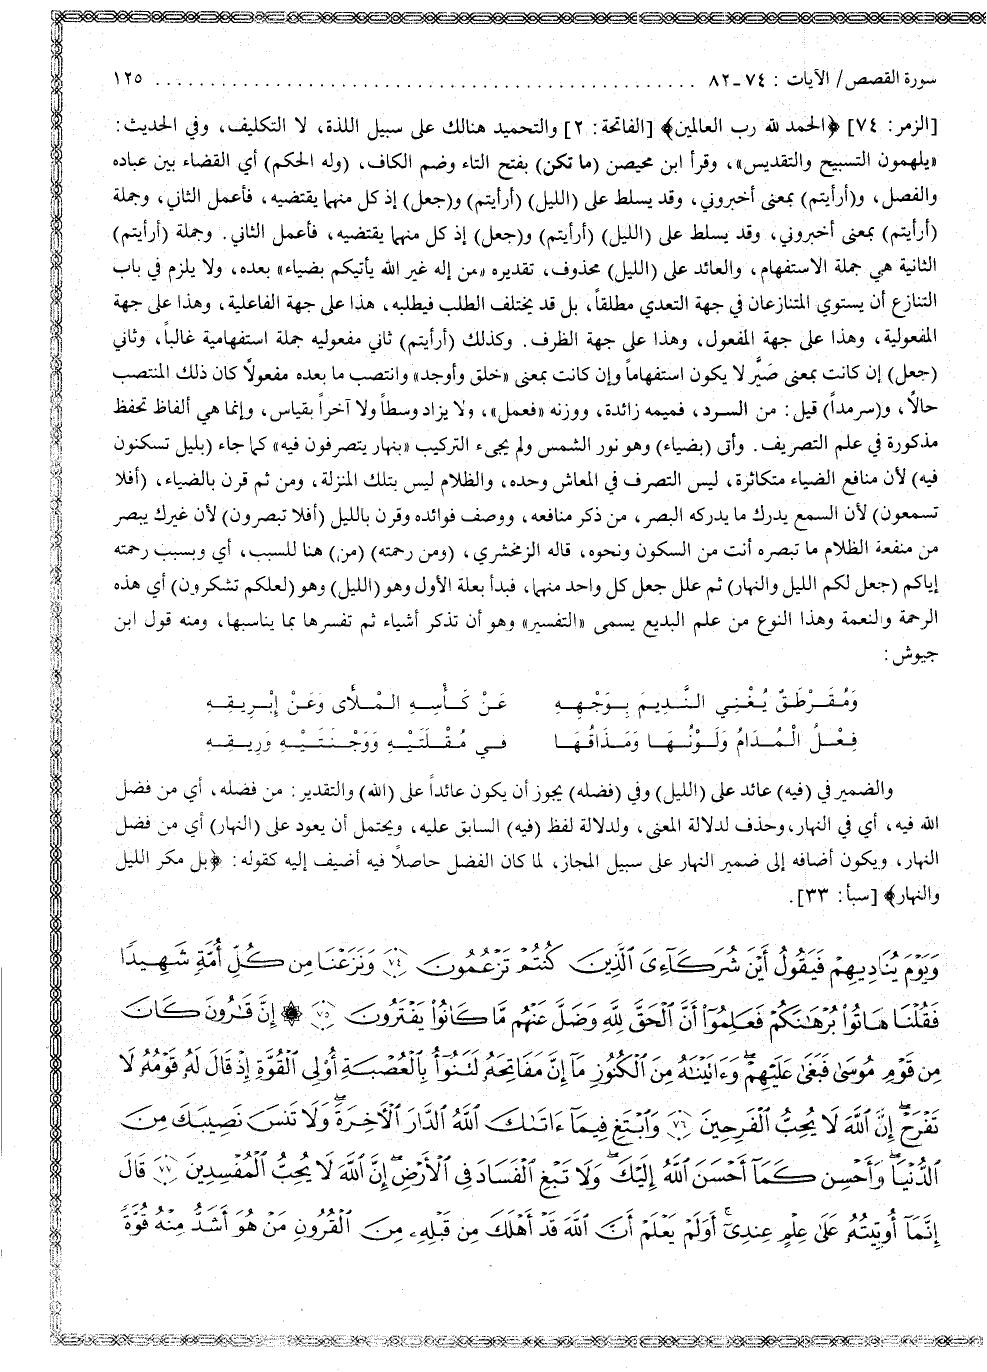 سورة القصص/ الآيات : ٧٤-٨٢ ................................................ ١٢٥
[الزمر: ٧٤] ﴿الحمد لله رب العالمين﴾ [الفاتحة: ٢] والتحميد هنالك على سبيل اللذة، لا التكليف، وفي الحديث:
«يلهمون التسبيح والتقديس»، وقرأ ابن محيصن (ما تكن) بفتح التاء وضم الكاف، (وله الحكم) أي القضاء بين عباده
والفصل، و(أرأيتم) بمعنى أخبروني، وقد يسلط على (الليل) (أرأيتم) و(جعل) إذ كل منهما يقتضيه، فأعمل الثاني، وجملة
(أرأيتم) بمعنى أخبروني، وقد يسلط على (الليل) (أرأيتم) و(جعل) إذ كل منهما يقتضيه، فأعمل الثاني. وجملة (أرأيتم)
الثانية هي جملة الاستفهام، والعائد على (الليل) محذوف، تقديره «من إله غير الله يأتيكم بضياء» بعده، ولا يلزم في باب
التنازع أن يستوي المتنازعان في جهة التعدي مطلقاً، بل قد يختلف الطلب فيطلبه، هذا على جهة الفاعلية، وهذا على جهة
المفعولية، وهذا على جهة المفعول، وهذا على جهة الظرف. وكذلك (أرأيتم) ثاني مفعوليه جملة استفهامية غالباً، وثاني
(جعل) إن كانت بمعنى صَيَّر لا يكون استفهاماً وإن كانت بمعنى «خلق وأوجد» وانتصب ما بعده مفعولاً كان ذلك المنتصب
حالاً، و(سرمداً) قيل: من السرد، فميمه زائدة، ووزنه «فعمل»، ولا يزاد وسطاً ولا آخراً بقياس، وإنما هي ألفاظ تحفظ
مذكورة في علم التصريف. وأتى (بضياء) وهو نور الشمس ولم يجىء التركيب «بنهار يتصرفون فيه» كما جاء (بليل تسكنون
فيه) لأن منافع الضياء متكاثرة، ليس التصرف في المعاش وحده، والظلام ليس بتلك المنزلة، ومن ثم قرن بالضياء، (أفلا
تسمعون) لأن السمع يدرك ما يدركه البصر، من ذكر منافعه، ووصف فوائده وقرن بالليل (أفلا تبصرون) لأن غيرك يبصر
من منفعة الظلام ما تبصره أنت من السكون ونحوه، قاله الزمخشري، (ومن رحمته) (من) هنا للسبب، أي وبسبب رحمته
إياكم (جعل لكم الليل والنهار) ثم علل جعل كل واحد منهما، فبدأ بعلة الأول وهو (الليل) وهو (لعلكم تشكرون) أي هذه
الرحمة والنعمة وهذا النوع من علم البديع يسمى «التفسير» وهو أن تذكر أشياء ثم تفسرها بما يناسبها، ومنه قول ابن
جيوش:
وَمُقَرْطَقٌ يُغْنِي النَّدِيمَ بِوَجْهِهِ عَنْ كَأْسِهِ المْلأَى وَعَنْ إِبْرِيقِهِ
فِعْلُ الْمُدَامُ وَلَوْنُهَا وَمَذَاقُهَا في مُقْلَتَيْهِ وَوَجْنَتَيْهِ وَرِيقِهِ
والضمير في (فيه) عائد على (الليل) وفي (فضله) يجوز أن يكون عائداً على (الله) والتقدير: من فضله، أي من فضل
الله فيه، أي في النهار، وحذف لدلالة المعنى، ولدلالة لفظ (فيه) السابق عليه، ويحتمل أن يعود على (النهار) أي من فضل
النهار، ويكون أضافه إلى ضمير النهار على سبيل المجاز، لما كان الفضل حاصلاً فيه أضيف إليه كقوله: ﴿بل مكر الليل
والنهار﴾ [سبأ: ٣٣].
وَيَوْمَ يُنَادِيهِمْ فَيَقُولُ أَيْنَ شُرَكَآءِىَ ٱلَّذِينَ كُنتُمْ تَزْعُمُونَ ٧٤ وَنَزَعْنَا مِن كُلِّ أُمَّةٍ شَهِيدًا
فَقُلْنَا هَاتُوا۟ بُرْهَانَكُمْ فَعَلِمُوٓا۟ أَنَّ ٱلْحَقَّ لِلَّهِ وَضَلَّ عَنْهُم مَّا كَانُوا۟ يَفْتَرُونَ ٧٥ ۞ إِنَّ قَارُونَ كَانَ
مِن قَوْمِ مُوسَىٰ فَبَغَىٰ عَلَيْهِمْ ۖ وَءَاتَيْنَاهُ مِنَ ٱلْكُنُوزِ مَآ إِنَّ مَفَاتِحَهُۥ لَتَنُوٓأُ بِٱلْعُصْبَةِ أُو۟لِى ٱلْقُوَّةِ إِذْ قَالَ لَهُۥ قَوْمُهُۥ لَا
تَفْرَحْ ۖ إِنَّ ٱللَّهَ لَا يُحِبُّ ٱلْفَرِحِينَ ٧٦ وَٱبْتَغِ فِيمَآ ءَاتَىٰكَ ٱللَّهُ ٱلدَّارَ ٱلْأَخِرَةَ ۖ وَلَا تَنسَ نَصِيبَكَ مِنَ
ٱلدُّنْيَا ۖ وَأَحْسِن كَمَآ أَحْسَنَ ٱللَّهُ إِلَيْكَ ۖ وَلَا تَبْغِ ٱلْفَسَادَ فِى ٱلْأَرْضِ ۖ إِنَّ ٱللَّهَ لَا يُحِبُّ ٱلْمُفْسِدِينَ ٧٧ قَالَ
إِنَّمَآ أُوتِيتُهُۥ عَلَىٰ عِلْمٍ عِندِىٓ ۚ أَوَلَمْ يَعْلَمْ أَنَّ ٱللَّهَ قَدْ أَهْلَكَ مِن قَبْلِهِۦ مِنَ ٱلْقُرُونِ مَنْ هُوَ أَشَدُّ مِنْهُ قُوَّةً